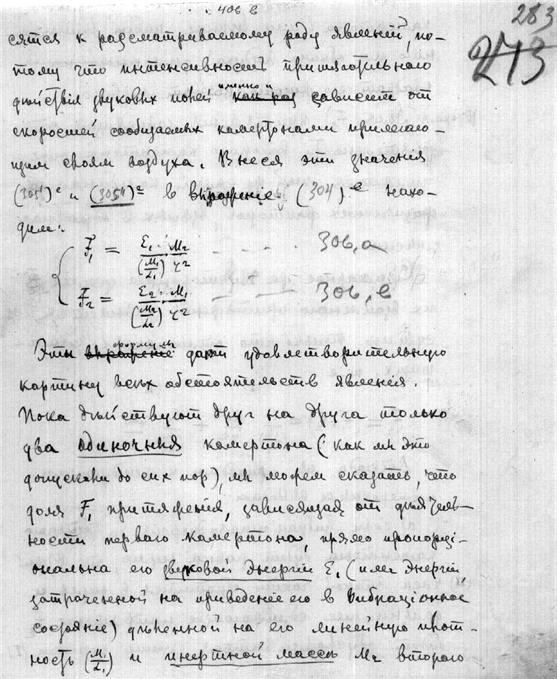 406 в
283
273
сятся к разсматриваемому роду явленій, по-
тому что интенсивность притягательнаго
дѣйствія звуковыхъ полей именно какъ разъ зависитъ отъ
скоростей сообщаемыхъ камертонами прилегаю-
щимъ слоямъ воздуха. Внеся эти значенія
(305)с и (305d)с в выраженіе (304)е нахо-
димъ:
F₁ = E₁/(M₁/L₁) · M₂/r² - - - - 306,a
F₂ = E₂/(M₂/L₂) · M₁/r² - - - 306,в
Эти выраженія формулы даютъ удовлетворительную
картину всѣхъ обстоятельствъ явленія.
Пока дѣйствуютъ другъ на друга только
два одиночныя камертона (какъ мы это
допускали до сихъ поръ), мы можемъ сказать, что
доля F₁ притяженія, зависящая отъ дѣятель-
ности перваго камертона, прямо пропорці-
ональна его звуковой энергіи E₁ (или энергіи
затраченной на приведеніе его в вибраціонное
состояніе) дѣленной на его линейную плот-
ность (M₁/L₁) и инертной массѣ M₂ второго